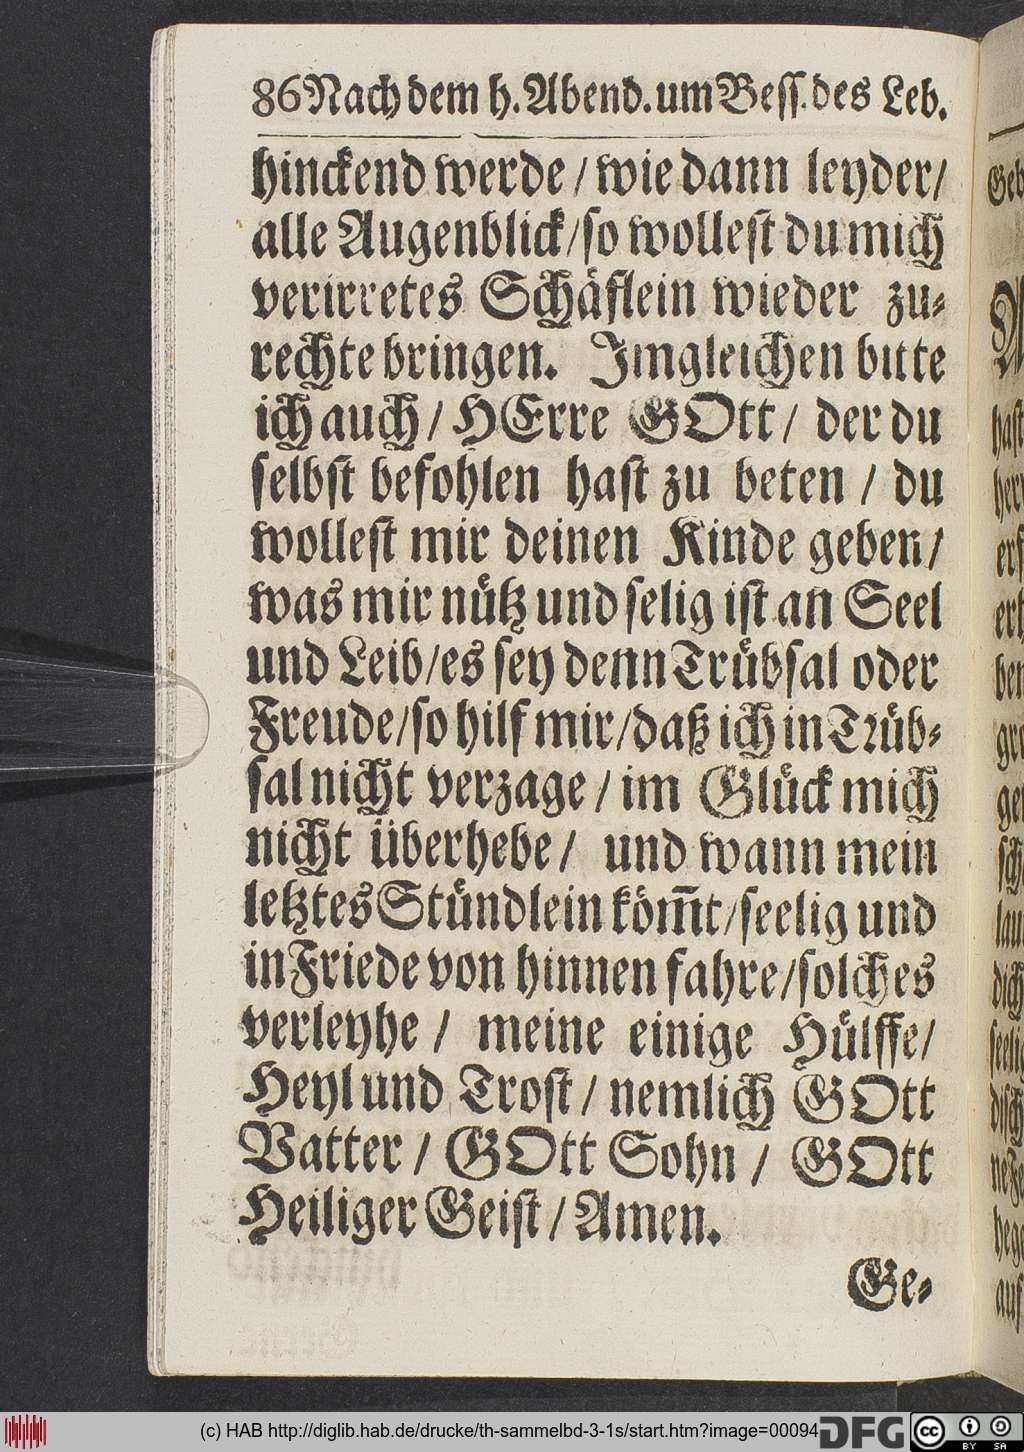 86 Nach dem h. Abend. um Bess. des Leb.
hinckend werde / wie dann leyder /
alle Augenblick / so wollest du mich
verirretes Schäflein wieder zu-
rechte bringen. Imgleichen bitte
ich auch / HErre GOtt / der du
selbst befohlen hast zu beten / du
wollest mir deinen Kinde geben /
was mir nütz und selig ist an Seel
und Leib / es sey denn Trübsal oder
Freude / so hilf mir / daß ich in Trüb-
sal nicht verzage / im Glück mich
nicht überhebe / und wann mein
letztes Stündlein köm̄t / seelig und
in Friede von hinnen fahre / solches
verleyhe / meine einige Hülffe /
Heyl und Trost / nemlich GOtt
Vatter / GOtt Sohn / GOtt
Heiliger Geist / Amen.
Ge-
(c) HAB http://diglib.hab.de/drucke/th-sammelbd-3-1s/start.htm?image=00094
DFG
cc
BY SA